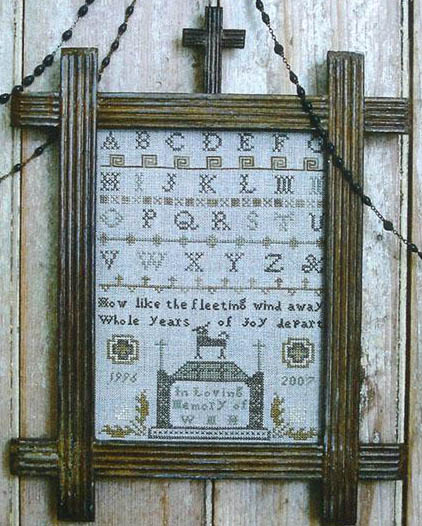 A B C D E F G
H I J K L M N
O P Q R S T U
V W X Y Z &
How like the fleeting wind away
Whole years of joy depart
1996 2007
In Loving
Memory of